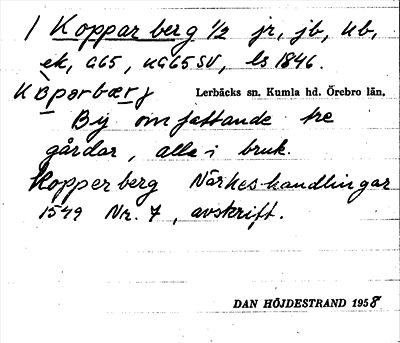 1 Kopparberg 1/2 jr, jb, ub,
ek, G65, UG65SV, ls 1846.
kòparbærj Lerbäcks sn. Kumla hd. Örebro län.
By omfattande tre
gårdar, alla i bruk.
Kopperberg Närkes handlingar
1549 Nr. 7, avskrift.
DAN HÖJDESTRAND 1958